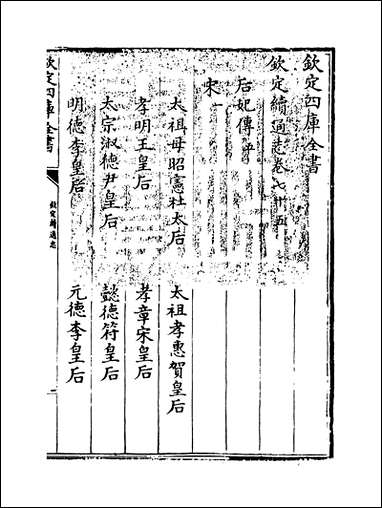 欽定四庫全書
欽定續通志卷七十五
后妃傳
宋一
太祖母昭憲杜太后 太祖孝惠賀皇后
孝明王皇后 孝章宋皇后
太宗淑德尹皇后 懿德符皇后
明德李皇后 元德李皇后
欽定四庫全書 欽定續通志